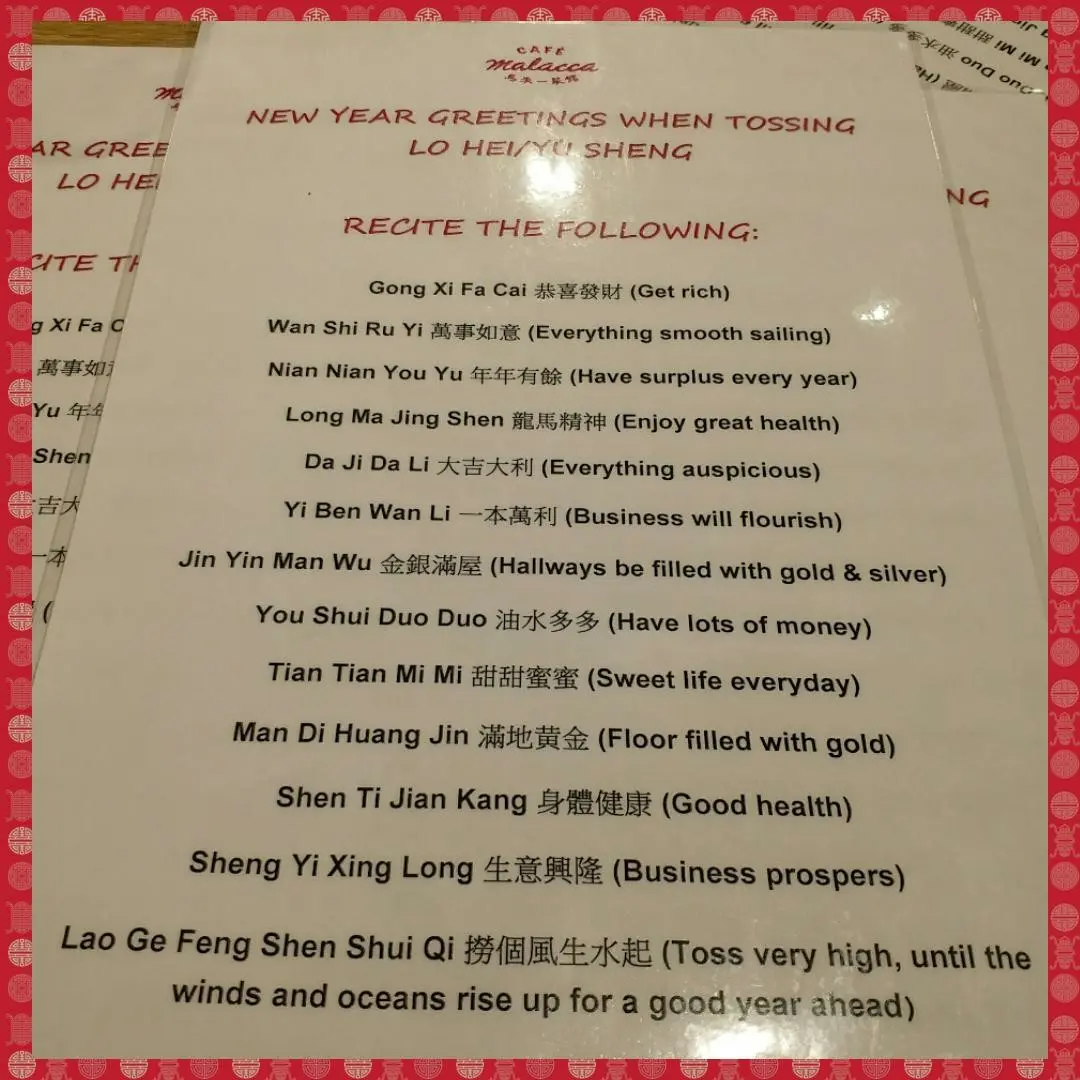 CAFÉ
malacca
NEW YEAR GREETINGS WHEN TOSSING
LO HEI/YU SHENG
RECITE THE FOLLOWING:
Gong Xi Fa Cai 恭喜發財 (Get rich)
Wan Shi Ru Yi 萬事如意 (Everything smooth sailing)
Nian Nian You Yu 年年有餘 (Have surplus every year)
Long Ma Jing Shen 龍馬精神 (Enjoy great health)
Da Ji Da Li 大吉大利 (Everything auspicious)
Yi Ben Wan Li 一本萬利 (Business will flourish)
Jin Yin Man Wu 金銀滿屋 (Hallways be filled with gold & silver)
You Shui Duo Duo 油水多多 (Have lots of money)
Tian Tian Mi Mi 甜甜蜜蜜 (Sweet life everyday)
Man Di Huang Jin 滿地黄金 (Floor filled with gold)
Shen Ti Jian Kang 身體健康 (Good health)
Sheng Yi Xing Long 生意興隆 (Business prospers)
Lao Ge Feng Shen Shui Qi 撈個風生水起 (Toss very high, until the
winds and oceans rise up for a good year ahead)